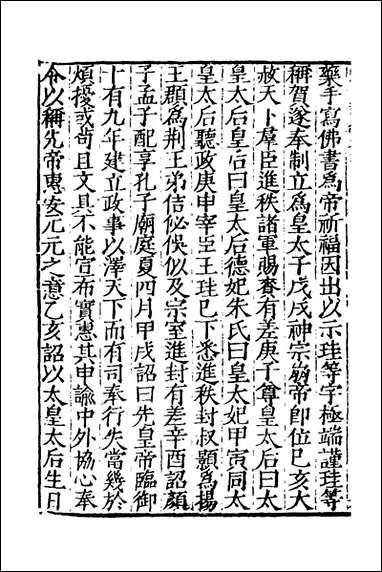 藥手寫佛書爲帝祈福因出以示珪等字極端謹珪等
稱賀遂奉制立爲皇太子戊戌神宗崩帝即位己亥大
赦天下羣臣進秩諸軍賜賚有差庚子尊皇太后曰太
皇太后皇后曰皇太后德妃朱氏曰皇太妃甲寅同太
皇太后聽政庚申宰臣王珪已下悉進秩封叔顥爲揚
王頵爲荆王弟佶佖俣似及宗室進封有差辛酉詔顔
子孟子配享孔子廟庭夏四月甲戌詔曰先皇帝臨御
十有九年建立政事以澤天下而有司奉行失當幾於
煩擾或茍且文具不能宣布實惠其申諭中外協心奉
令以稱先帝惠安元元之意乙亥詔以太皇太后生日